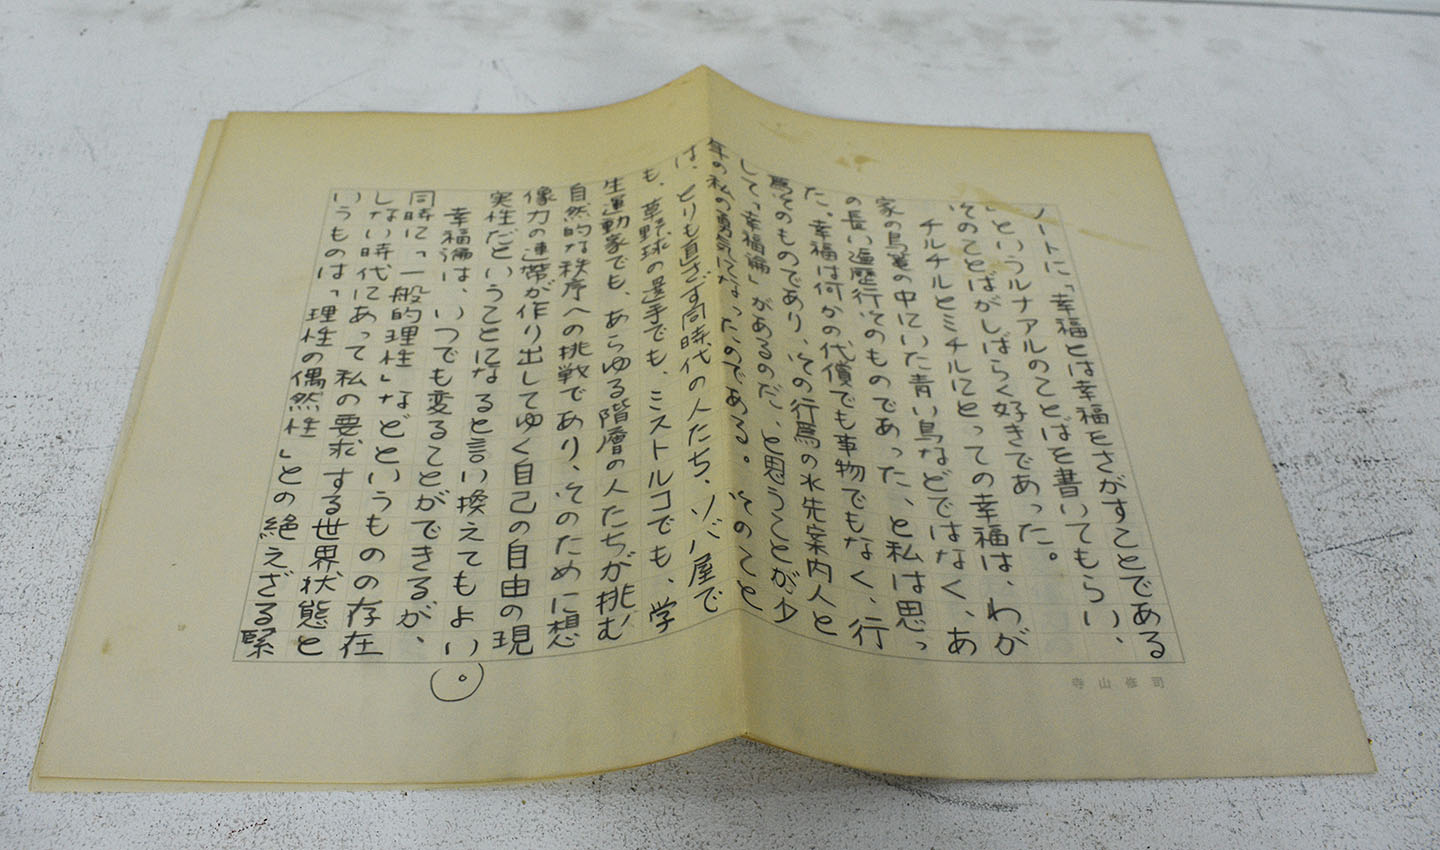 ノートに「幸福とは幸福をさがすことである
」というルナアルのことばを書いてもらい、
そのことばがしばらく好きであった。
チルチルとミチルにとっての幸福は、わが
家の鳥篭の中にいた青い鳥などではなく、あ
の長い遍歴行そのものであった、と私は思っ
た。幸福は何かの代償でも事物でもなく、行
為そのものであり、その行為の水先案内人と
して「幸福論」があるのだ、と思うことが少
年の私の勇気になったのである。そのこと
は、とりも直さず同時代の人たち、ソバ屋で
も、草野球の選手でも、ミストルコでも、学
生運動家でも、あらゆる階層の人たちが挑む
自然的な秩序への挑戦であり、そのために想
像力の連帯が作り出してゆく自己の自由の現
実性だということになると言い換えてもよい。
幸福論は、いつでも変ることができるが、
同時に「一般的理性」などというものの存在
しない時代にあって私の要求する世界状態と
いうものは「理性の偶然性」との絶えざる緊
寺山修司